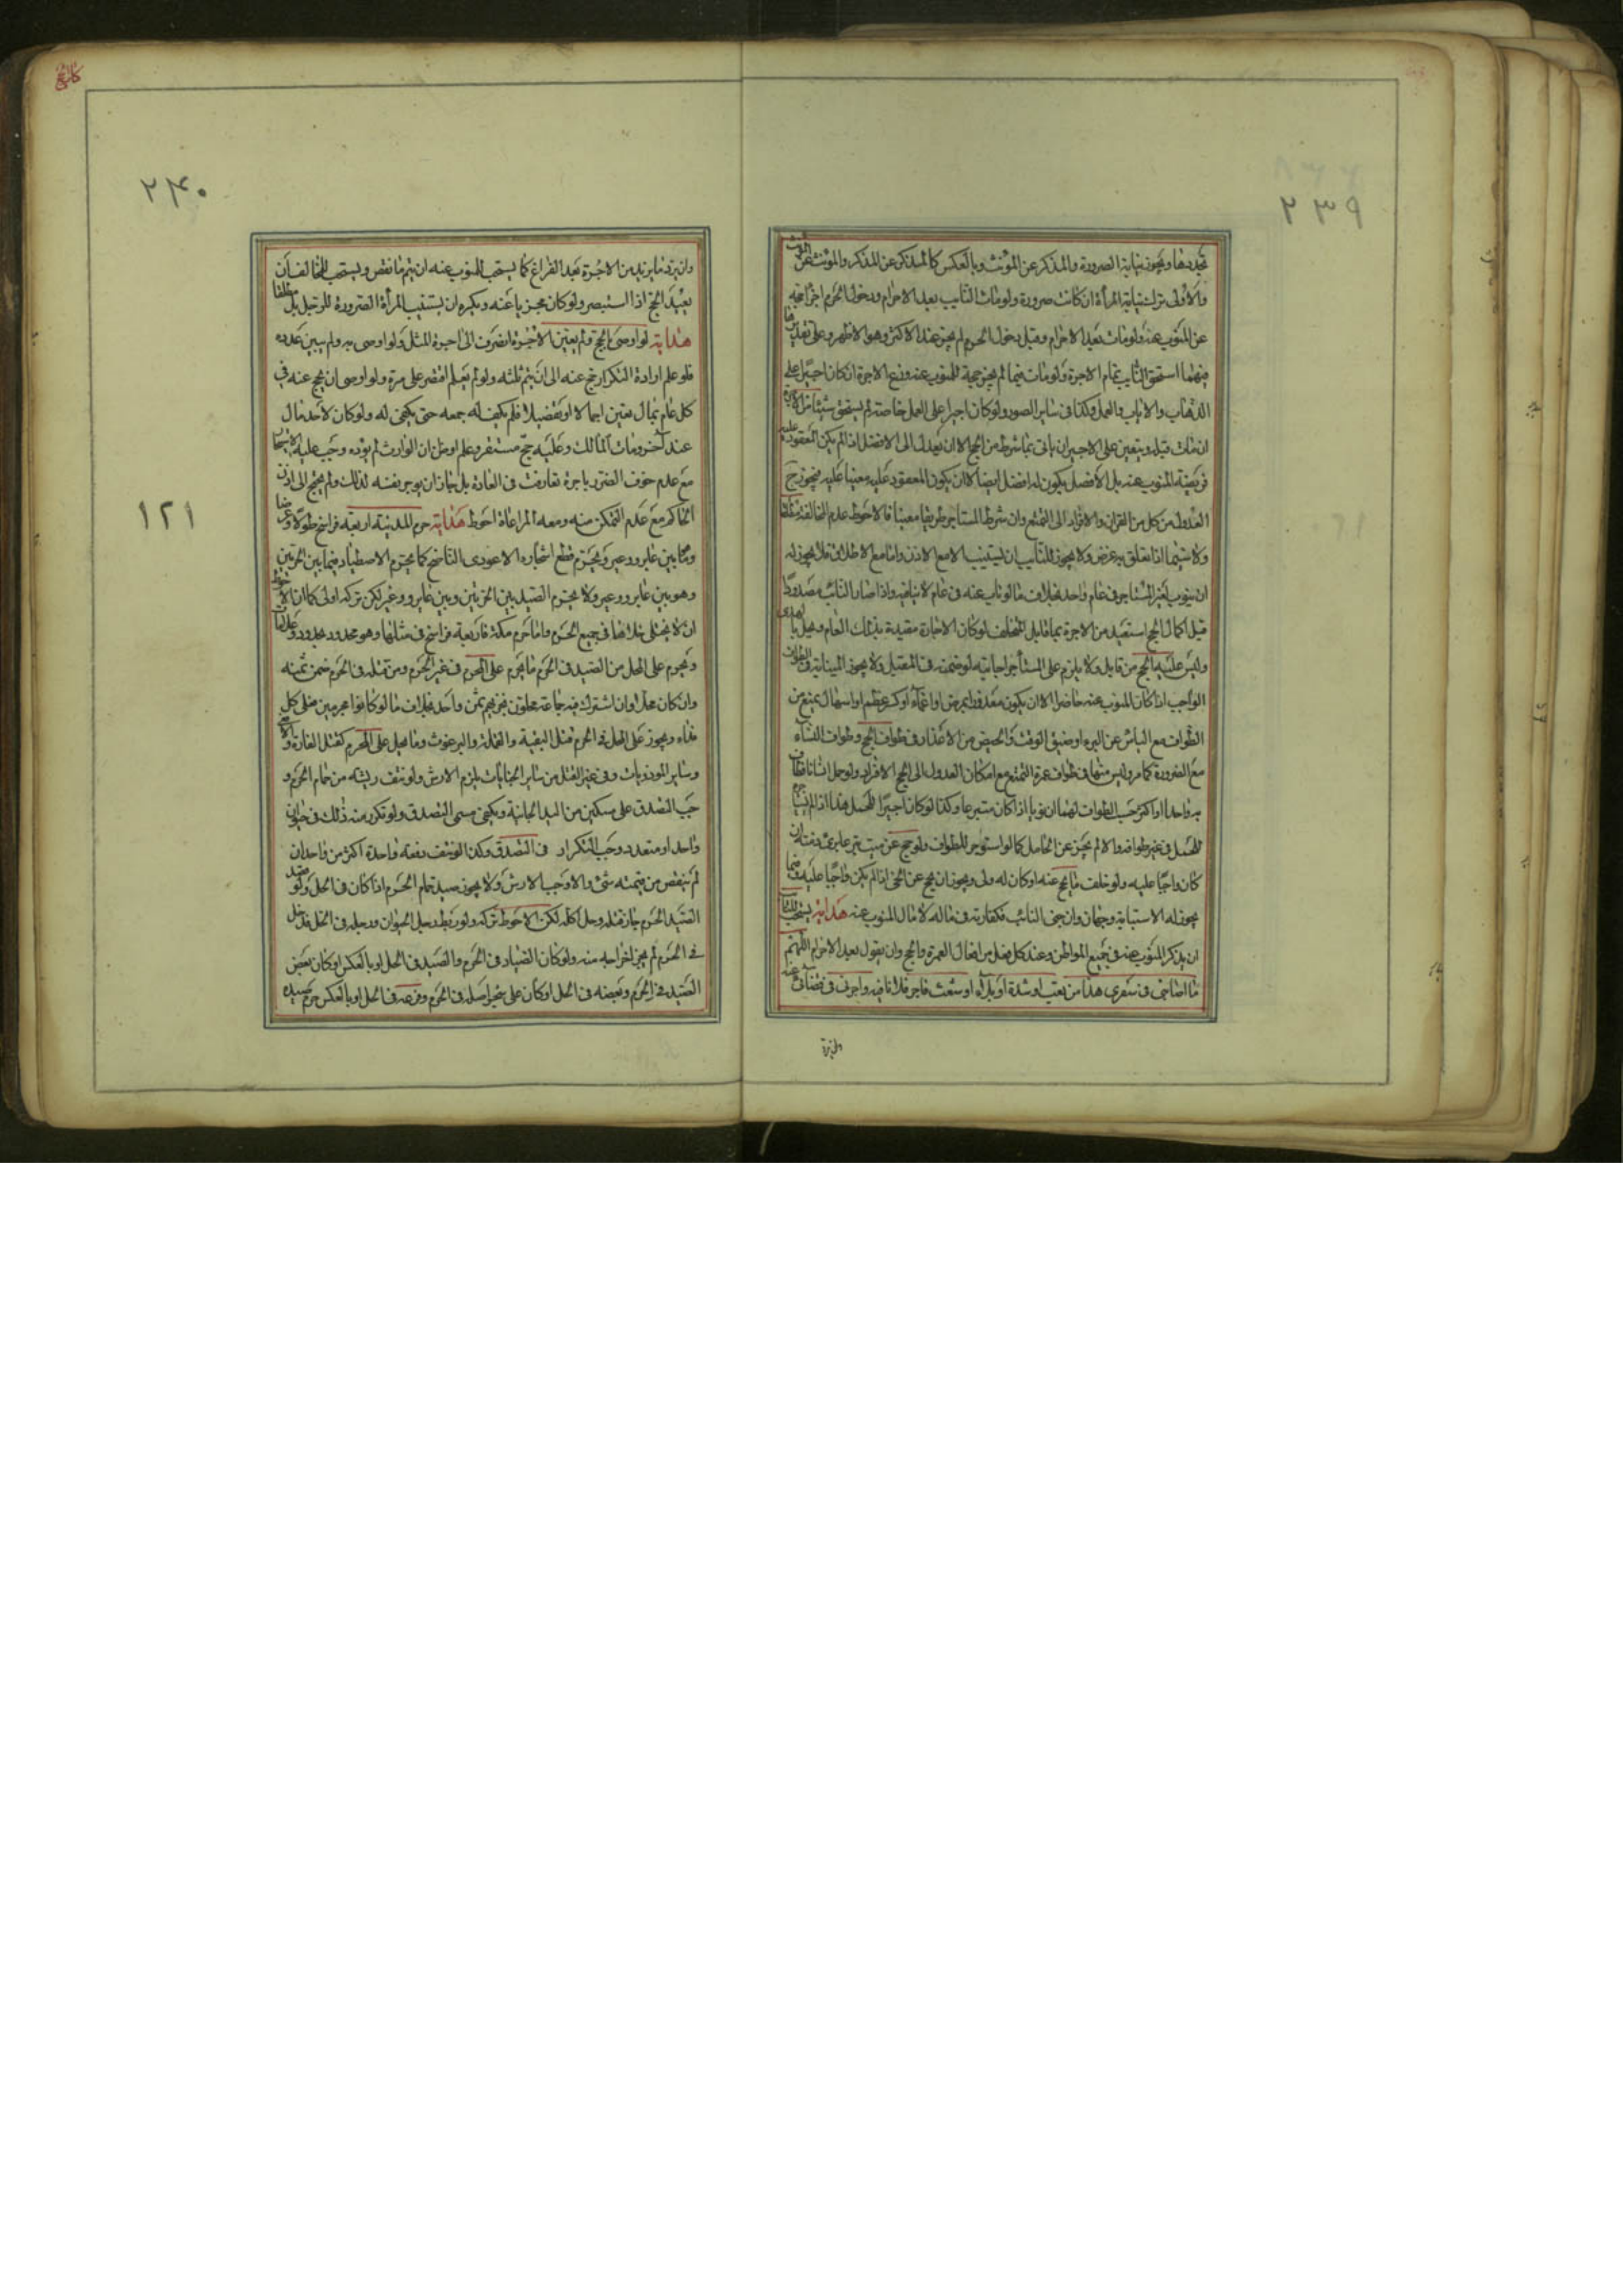 ٢٣٩
تجددها ويجوز نيابة الصرورة والمذكر عن المؤنث وبالعكس كالمذكر عن المذكر والمؤنث عن المؤنث
والأولى ترك نيابة المرأة ان كانت صرورة ولو مات النايب بعد الاحرام ودخول الحرم اجزأ حجه
عن المنوب عنه ولو مات بعد الاحرام وقبل دخول الحرم لم يجز عند الاكثر وهو الاظهر وعلى تقدير
فيهما استحق النايب تمام الاجرة ولو مات فيما لم يجز حجه للمنوب عنه وزع الاجرة ان كان اجيرا على
الذهاب والاياب والعمل وكذا في ساير الصور ولو كان اجيرا على العمل خاصة لم يستحق شيئا من الاجرة
ان مات قبله ويتعين على الاجير ان ياتى بما شرط من الحج الا ان يعدل الى الافضل اذا لم يكن المعقود عليه
فريضة المنوب عنه بل الافضل يكون له افضل ايضا الا ان يكون المعقود عليه معينا عليه فيجوز ح
العدول من كل من القران والافراد الى التمتع وان شرط المستاجر طريقا معينا فالاحوط عدم المخالفة مطلقا
ولا سيما اذا تعلق به غرض ولا يجوز للنايب ان يستنيب الا مع الاذن واما مع الاطلاق فلا يجوز له
ان ينوب لغير المستاجر في عام واحد بخلاف ما لو ناب عنه في عام لا ينافيه واذا صار النائب مصدودا
قبل اكمال الحج استعيد من الاجرة بما قابل المتخلف لو كان الاجارة مقيدة بذلك العام
وليس عليه الحج من قابل ولا يلزم على المستأجر اجابته لو ضمنه في المقبل ولا يجوز النيابة في الطواف
الواجب اذا كان المنوب عنه حاضرا الا ان يكون معذورا بمرض او اغماء او كسر عظم او اسهال يمنع من
الطواف مع الياس عن البرء او ضيق الوقت والحيض من الاعذار في طواف الحج وطواف النساء
مع الضرورة كما مر وليس منها في طواف عمرة التمتع مع امكان العدول الى حج الافراد ولو حمل انسانا فطاف
به واحدا او اكثر حسب الطواف لهما ان نويا اذا كان متبرعا وكذا لو كان اجيرا للحمل هذا اذا لم
للحمل في غير طوافه والا لم يجز عن الحامل كما لو استوجر للطواف ولو حج عن ميت تبرعا برئ ذمته ان
كان واجبا عليه ولو خلف ما يحج عنه او كان له ولى ويجوز ان يحج عن الحى اذا لم يكن واجبا عليه
يجوز له الاستنابة وجهان وان جنى النائب فكفارته في ماله لا مال المنوب عنه هداية يستحب للنائب
ان يذكر المنوب عنه في جميع المواطن وعند كل فعل من افعال العمرة والحج وان يقول بعد الاحرام اللهم
ما اصابنى في سفرى هذا من تعب او شدة او بلاء او شعث فاجر فلانا فيه واجرنى في قضائى عنه
٢٤٠
وان يرد ما يزيد من الاجرة بعد الفراغ كما يستحب للمنوب عنه ان يتم ما نقص ويستحب للمخالف ان
يعيد الحج اذا استبصر ولو كان مجزيا عنه ويكره ان يستنيب المرأة الصرورة للرجل بل مطلقا
هداية لو اوصى بالحج ولم يعين الاجرة انصرف الى اجرة المثل ولو اوصى به ولم يبين عدده
فلو علم ارادة التكرار حج عنه الى ان يتم ثلثه ولو لم يعلم اقتصر على مرة ولو اوصى ان يحج عنه في
كل عام بمال معين اجمالا او تفضيلا فلم يكف له جمعه حتى يكفى له ولو كان لاحد مال
عند آخر ومات المالك وعليه حج مستقر وعلم او ظن ان الوارث لم يؤده وجب عليه الاستيجار
مع عدم خوف الضرر باجرة تعارفت في العادة بل جاز ان يوجر نفسه لذلك ولم يحتج الى اذن
الحاكم مع عدم التمكن منه ومعه المراعاة احوط هداية حرم المدينة اربعة فراسخ طولا وعرضا
وما بين عاير ووعير ويحرم قطع اشجاره الا عودى الناضح كما يحرم الاصطياد فيما بين الحرتين
وهو بين عاير ووعير ولا يحرم الصيد بين الحرتين وبين عاير ووعير لكن تركه اولى كما ان الاحوط
ان لا يختلى خلاها في جميع الحرم واما حرم مكة فاربعة فراسخ في مثلها وهو محدود بحدود وعلامات
ويحرم على المحل من الصيد في الحرم ما يحرم على المحرم في غير الحرم ومن قتله في الحرم ضمن ثمنه
وان كان محلا وان اشترك فيه جماعة محلون فعليهم ثمن واحد بخلاف ما لو كانوا محرمين فعلى كل
فداء ويجوز على المحل في الحرم قتل البقة والقملة والبرغوث وما يحل على المحرم كقتل الفارة و
وساير الموذيات وفي غير القتل من ساير الجنايات يلزم الارش ولو نتف ريشه من حمام الحرم و
جب التصدق على مسكين من اليد الجانية ويكفى مسمى التصدق ولو تكرر منه ذلك في حيوان
واحد او متعدد وجب التكرار في التصدق وكذا لو نتف دفعة واحدة اكثر من واحد ان
لم ينقص من قيمته شئ والا وجب الارش ولا يجوز صيد حمام الحرم اذا كان في الحل ولو قصد
الصيد الحرم جاز قتله وحل اكله لكن الاحوط تركه ولو ربط رجل الحيوان ورجله في الحل فدخل
في الحرم لم يجز اخراجه منه ولو كان الصياد في الحرم والصيد في الحل او بالعكس او كان بعض
الصيد في الحرم وبعضه في الحل او كان على شجر اصله في الحرم وفرعه في الحل او بالعكس حرم صيده
١٢١